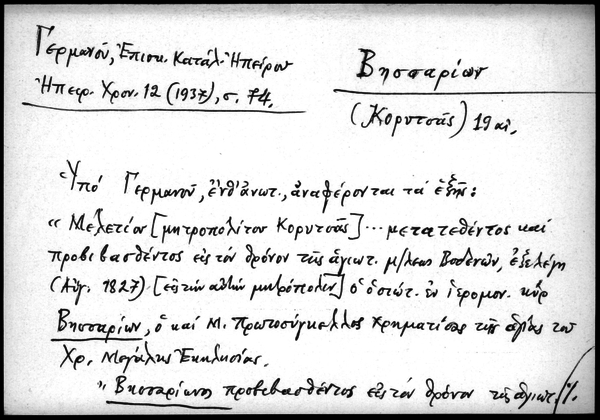 Γερμανοῦ, Ἐπισκ. Κατάλ. Ἠπείρου
Ἠπειρ. Χρον. 12 (1937), σ. 74.
Βησσαρίων
(Κορυτσᾶς) 19 αἰ.
Ὑπό Γερμανοῦ, ἐνθ' ἀνωτ., ἀναφέρονται τά ἑξῆς:
« Μελετίου [μητροπολίτου Κορυτσᾶς] ... μετατεθέντος καί
προβιβασθέντος εἰς τόν θρόνον τῆς ἁγιωτ. μ/λεως Βοδενῶν, ἐξελέγη
(Αὔγ. 1827) [εἰς τήν αὐτήν μητρόπολιν] ὁ ὁσιώτ. ἐν ἱερομον. κύρ
Βησσαρίων, ὁ καί Μ. Πρωτοσύγκελλος χρηματίσας τῆς ἁγίας τοῦ
Χρ. Μεγάλης Ἐκκλησίας.
" Βησσαρίωνος προβιβασθέντος εἰς τόν θρόνον τῆς ἁγιωτ. /.